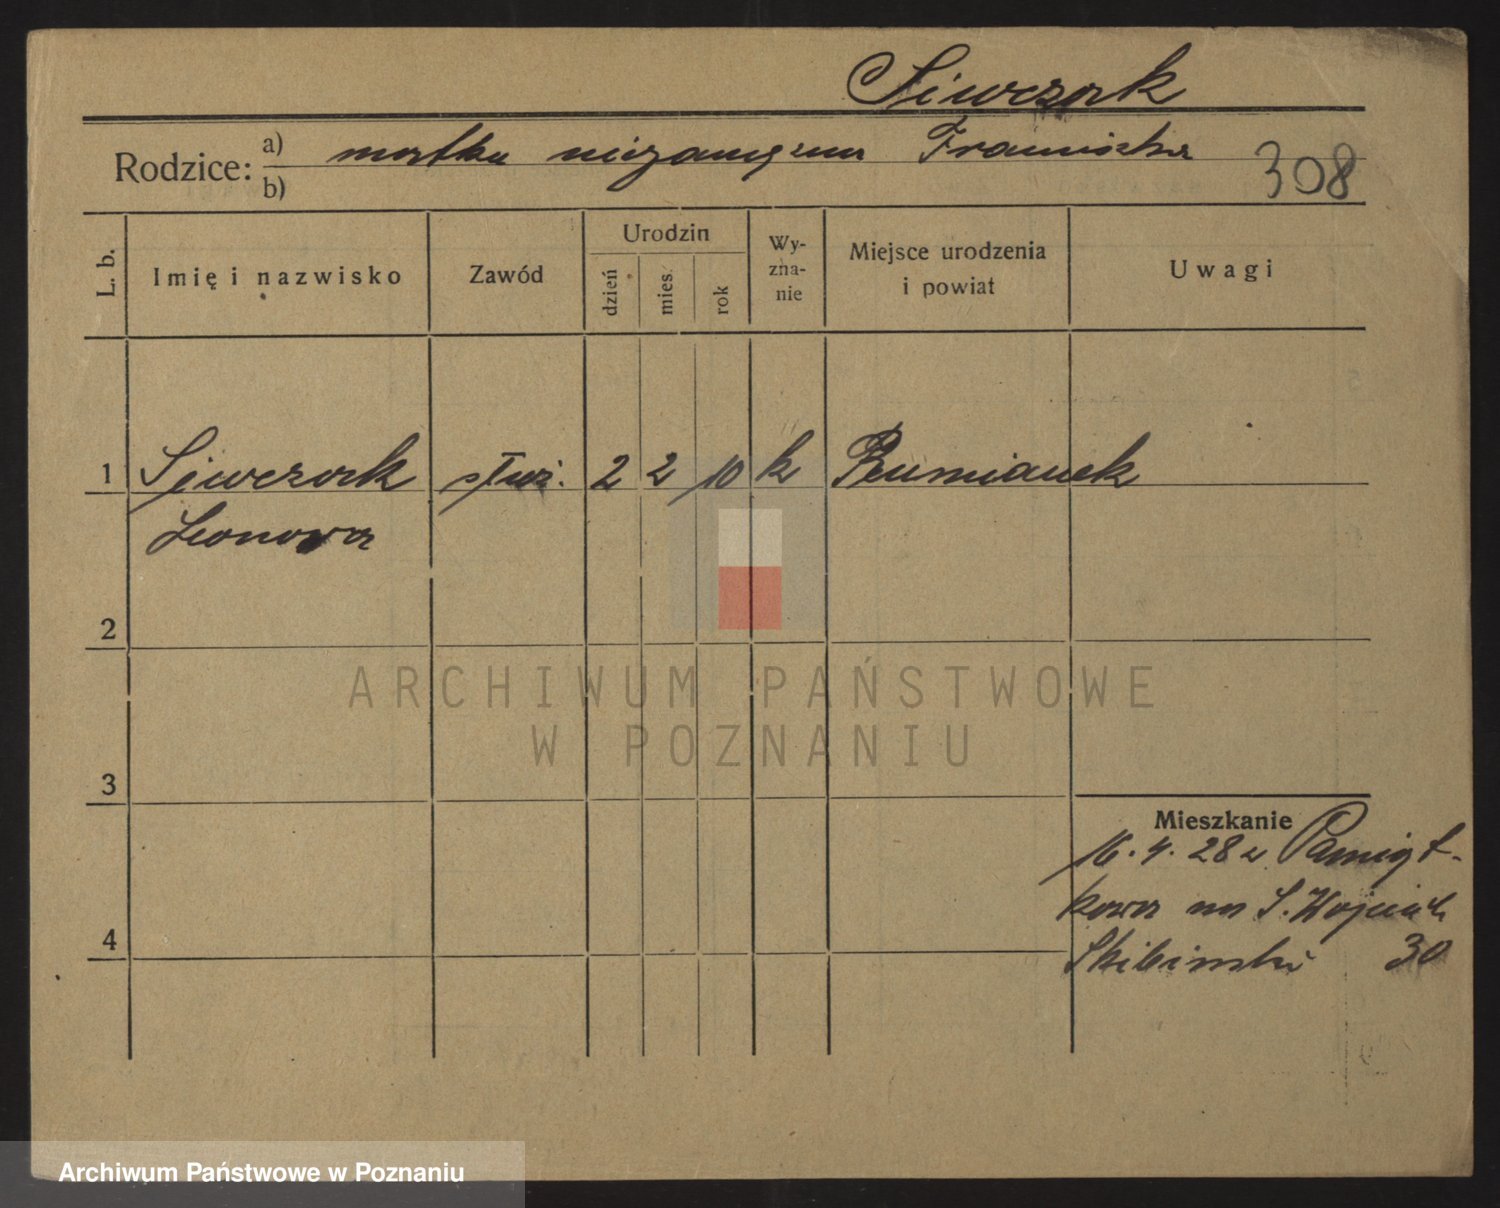 Siwczak
Rodzice: a) matka niezamężna Franciszka
b)
308
L. b. Imię i nazwisko Zawód Urodzin dzień mies. rok Wy-zna-nie Miejsce urodzenia i powiat Uwagi
1 Siwczak służ. 2 2 10 k Rumianek
Leonowa
2
ARCHIWUM PAŃSTWOWE
W POZNANIU
3
Mieszkanie
16. 4. 28 z Pamiąt-
kowa na S. Wojciech
4
Skibiński 30
Archiwum Państwowe w Poznaniu